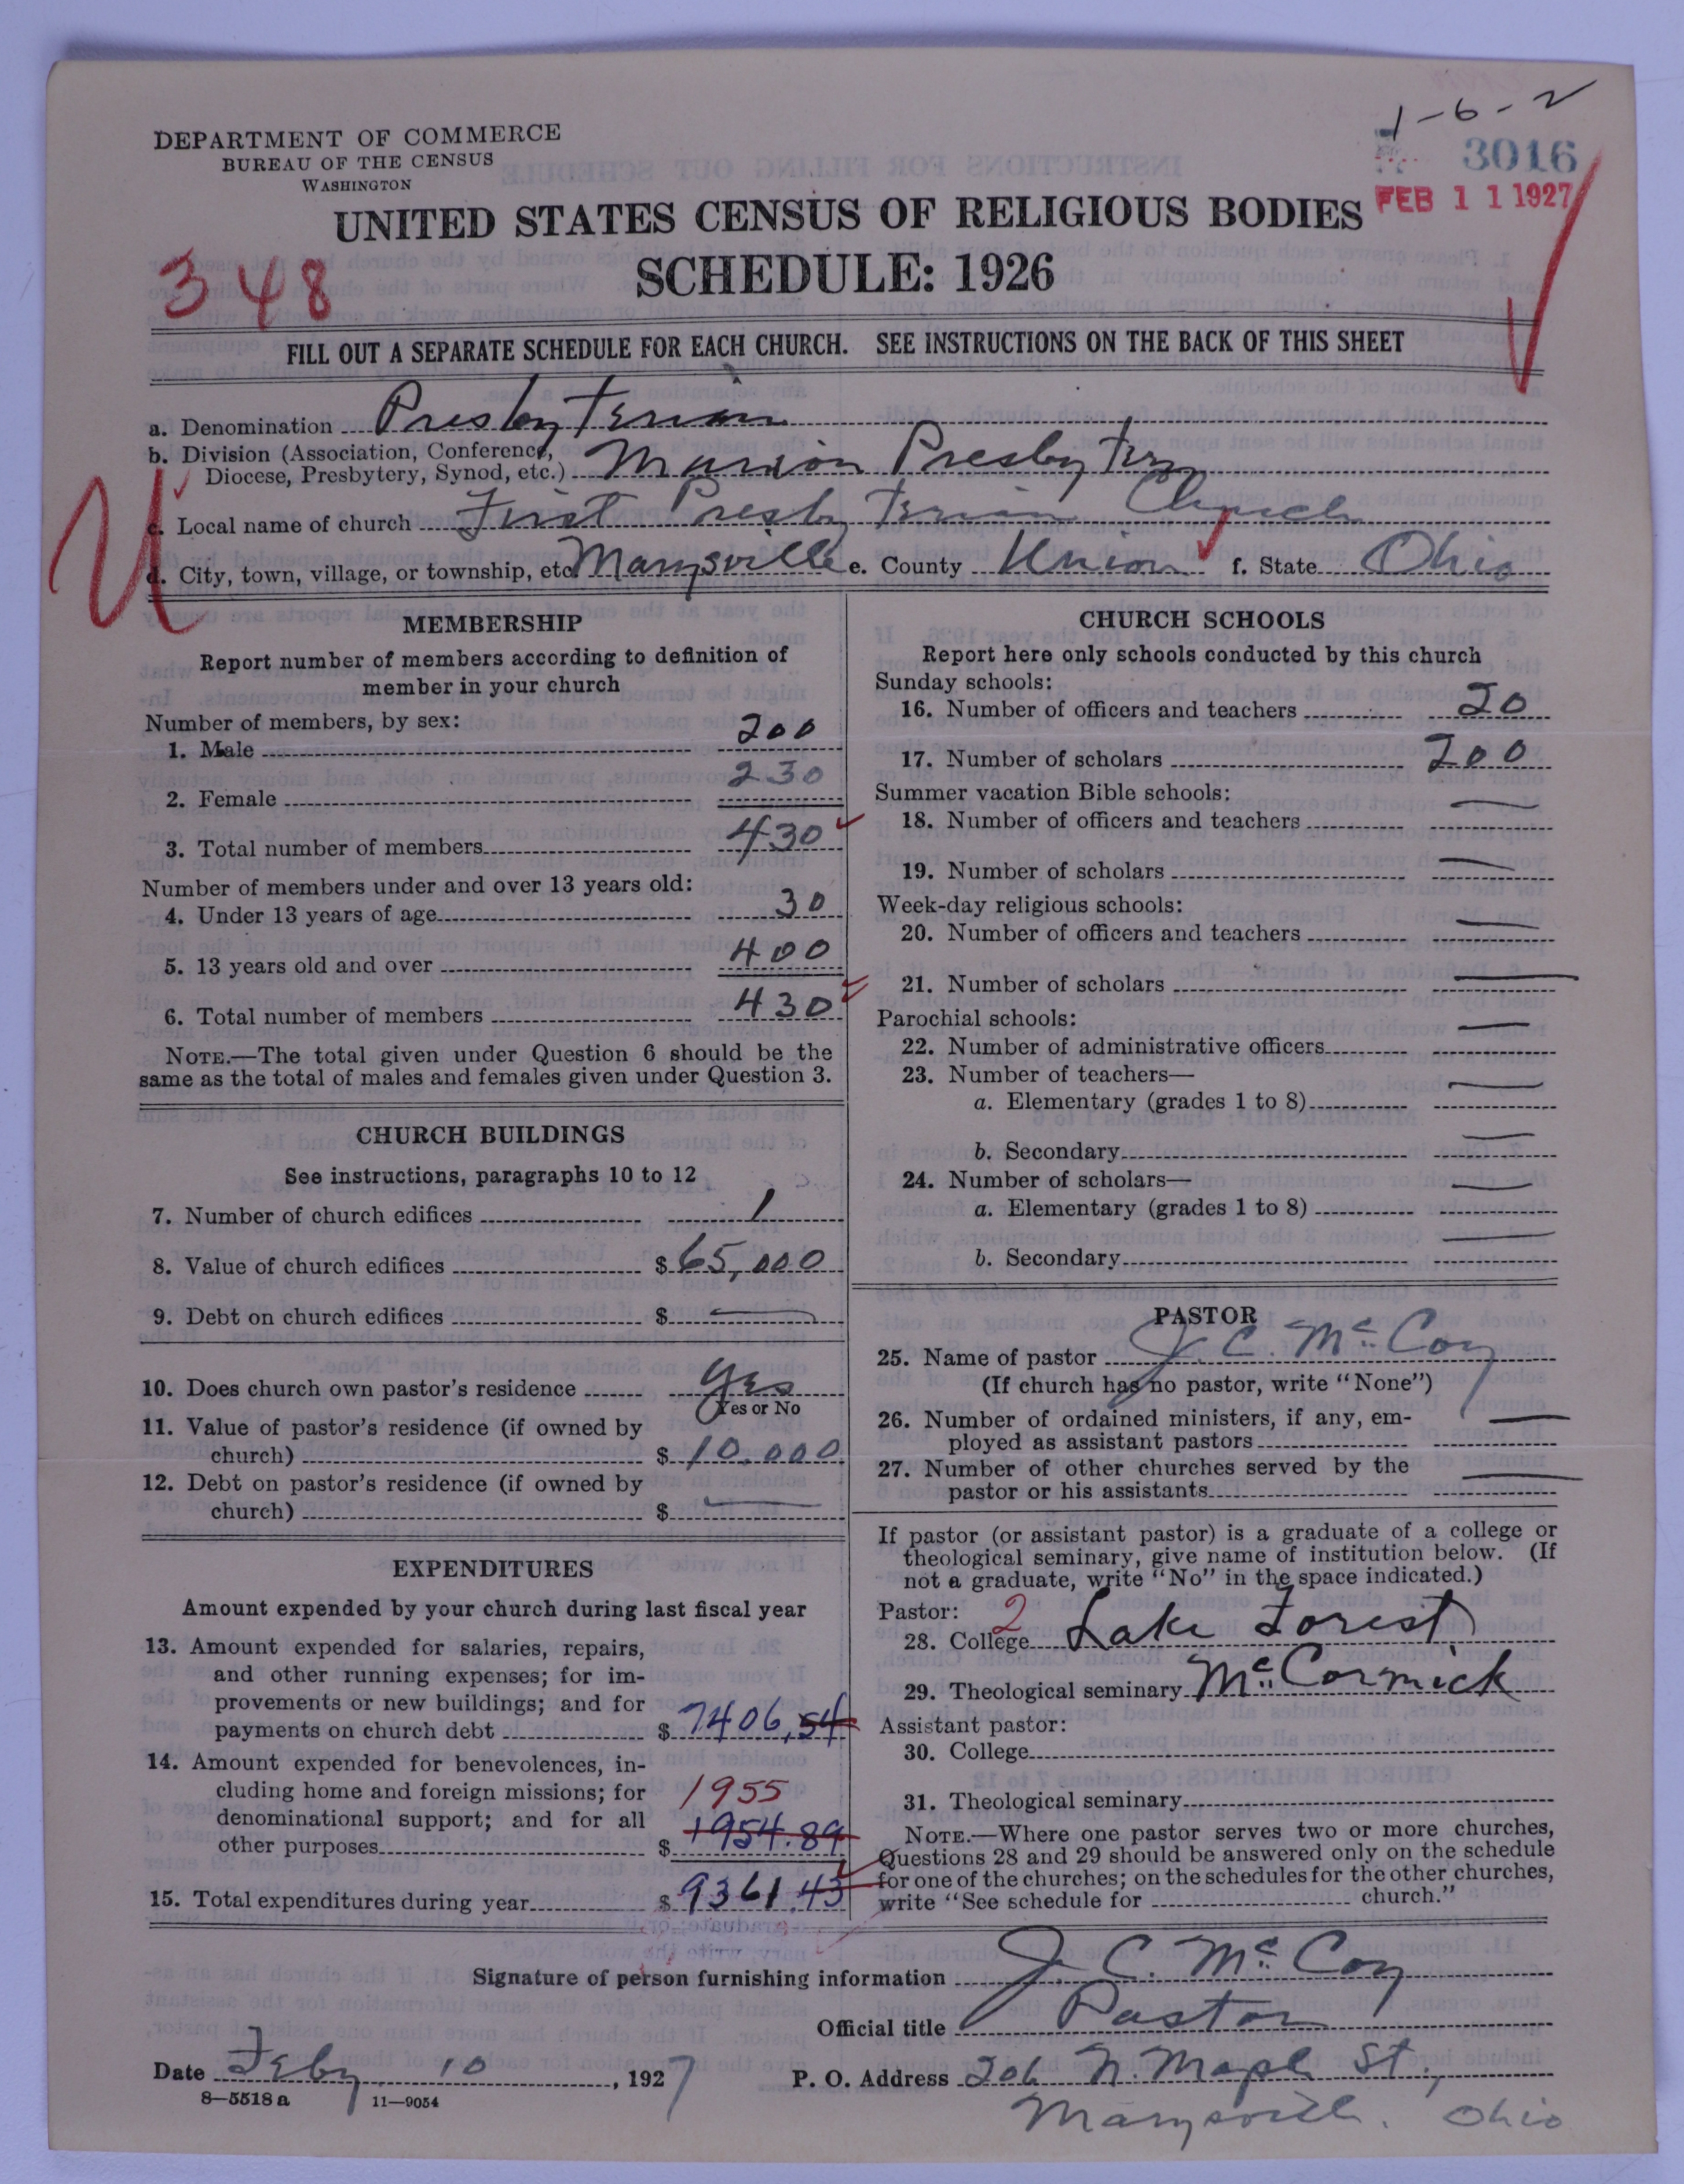 1-6-2
DEPARTMENT OF COMMERCE
BUREAU OF THE CENSUS
WASHINGTON
3016
FEB 11 1927
UNITED STATES CENSUS OF RELIGIOUS BODIES
SCHEDULE: 1926
348
FILL OUT A SEPARATE SCHEDULE FOR EACH CHURCH. SEE INSTRUCTIONS ON THE BACK OF THIS SHEET
a. Denomination Presbyterian
b. Division (Association, Conference,
Diocese, Presbytery, Synod, etc.) Marion Presbytery
c. Local name of church First Presbyterian Church
d. City, town, village, or township, etc. Marysville e. County Union f. State Ohio
MEMBERSHIP
Report number of members according to definition of
member in your church
Number of members, by sex:
1. Male 200
2. Female 230
3. Total number of members 430
Number of members under and over 13 years old:
4. Under 13 years of age 30
5. 13 years old and over 400
6. Total number of members 430
NOTE.—The total given under Question 6 should be the
same as the total of males and females given under Question 3.
CHURCH BUILDINGS
See instructions, paragraphs 10 to 12
7. Number of church edifices 1
8. Value of church edifices $ 65,000
9. Debt on church edifices $ —
10. Does church own pastor's residence Yes
Yes or No
11. Value of pastor's residence (if owned by
church) $ 10.000
12. Debt on pastor's residence (if owned by
church) $ —
EXPENDITURES
Amount expended by your church during last fiscal year
13. Amount expended for salaries, repairs,
and other running expenses; for im-
provements or new buildings; and for
payments on church debt $ 7406.54
14. Amount expended for benevolences, in-
cluding home and foreign missions; for 1955
denominational support; and for all
other purposes $ 1954.89
15. Total expenditures during year $ 9361.43
CHURCH SCHOOLS
Report here only schools conducted by this church
Sunday schools:
16. Number of officers and teachers 20
17. Number of scholars 200
Summer vacation Bible schools:
18. Number of officers and teachers —
19. Number of scholars —
Week-day religious schools:
20. Number of officers and teachers —
21. Number of scholars —
Parochial schools:
22. Number of administrative officers —
23. Number of teachers—
a. Elementary (grades 1 to 8) —
b. Secondary —
24. Number of scholars—
a. Elementary (grades 1 to 8) —
b. Secondary —
PASTOR
25. Name of pastor J. C. McCoy
(If church has no pastor, write "None")
26. Number of ordained ministers, if any, em-
ployed as assistant pastors —
27. Number of other churches served by the
pastor or his assistants —
If pastor (or assistant pastor) is a graduate of a college or
theological seminary, give name of institution below. (If
not a graduate, write "No" in the space indicated.)
Pastor: 2
28. College Lake Forest
29. Theological seminary McCormick
Assistant pastor:
30. College
31. Theological seminary
NOTE.—Where one pastor serves two or more churches,
Questions 28 and 29 should be answered only on the schedule
for one of the churches; on the schedules for the other churches,
write "See schedule for church."
Signature of person furnishing information J. C. McCoy
Official title Pastor
Date Feby 10, 1927
P. O. Address 206 N. Maple St.,
Marysville, Ohio
8—5518 a 11—9054